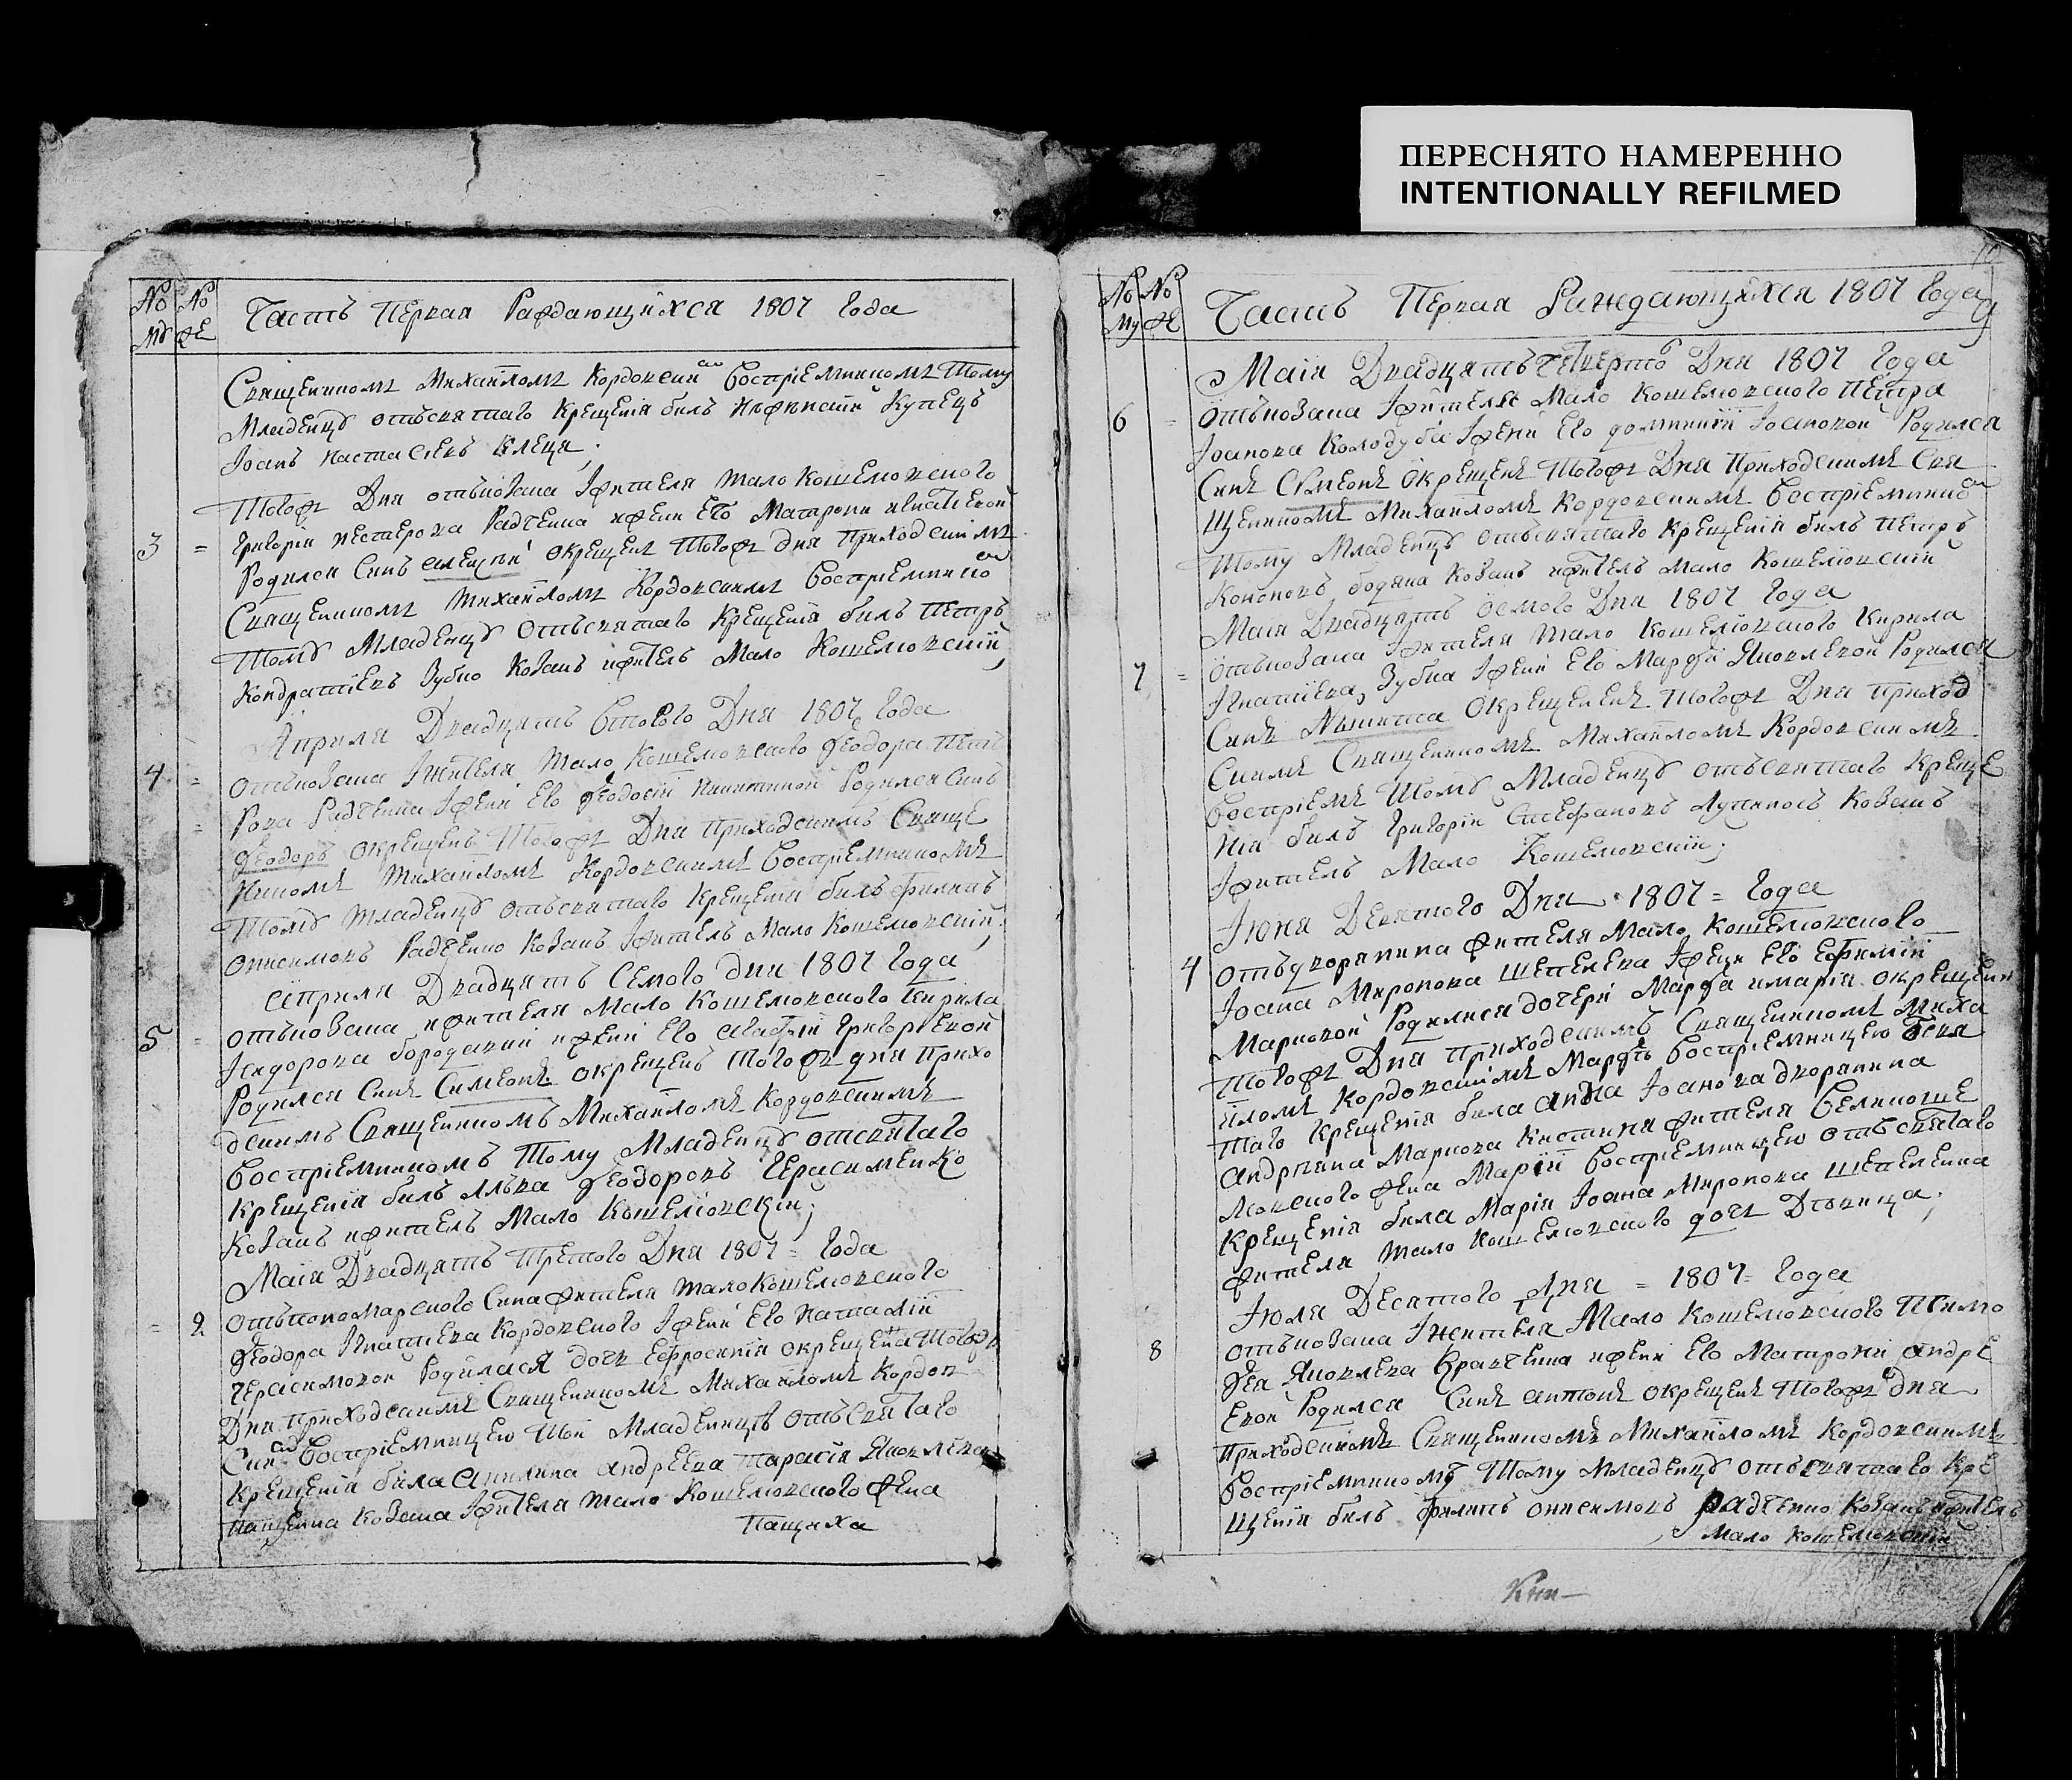 ПЕРЕСНЯТО НАМЕРЕННО
INTENTIONALLY REFILMED
№ № Часть Первая Раждающихся 1807 Года
му же
Священникомъ Михаиломъ Кордовски Воспріемникомъ Тому
Младенцу отъ святаго Крещенія билъ Купецъ
Іоанъ
Тогожъ Дня отъ козака Жителя мало Кошелювского
3 = Григорія Нестерова Радченка ижени Его Матрони Игнатіевой
Родился Синъ Алеѯѣй окрещенъ Тогожъ Дня Приходскимъ
Священникомъ Михаиломъ Кордовскимъ Воспріемнико
Тому Младенцу Отъ святаго Крещенія билъ Петръ
Кондратіевъ Зубко Козакъ ижитель Мало Кошелювскій,
Априля Двадцать Втового Дня 1807 Года
4 = отъ козака Жителя Мало Кошелювского Ѳеодора Пет
= рова Радченка Іжени Его Ѳеодосіи Никитиной Родился Синъ
Ѳеодоръ окрещенъ Тогожъ Дня Приходскимъ Свяще
нникомъ Михаиломъ Кордовскимъ Воспріемникомъ
Тому младенцу отъ святаго Крещенія билъ Филипъ
Онисимовъ Радченко Козакъ Житель Мало Кошелювскій;
Априля Двадцать Семого дня 1807 Года
5 = отъ козака ижителя Мало Кошелювского Кирила
Ісидорова ижени Его Агафіи Григоріевой
Родился Синъ Симеонъ окрещенъ тогожъ дня прихо
дскимъ Священникомъ Михаиломъ Кордовскимъ
Воспріемникомъ Тому Младенцу отсвятаго
Крещенія билъ Лука Ѳеодоровъ Герасименко
Козакъ ижитель Мало Кошелювскій;
Маія Двадцать Третого Дня 1807 = Года
= 2 отъ пономарского Сина Жителя мало Кошелювского
Ѳеодора Ігнатіева Кордовского Іжени Его Наталіи
Герасимовой Родилася дочь Ефросинія окрещена Тогожъ
Дня Приходскимъ Священникомъ Михаиломъ Кордов
Ски Воспріемницею Той Младенцѣ отъ Святаго
Крещенія била Акилина Андреева Тарасія Яковлева
Пащенка Козака Жителя мало Кошелювского Жена
Пащиха
№ № Часть Первая Раждающихся 1807 Года
му же
9
Маія Двадцать Четверто Дня 1807 Года
6 = отъ козака Жителя Мало Кошелювского Петра
Іоанова Колодуба Іжени Его Домникіи Іоановой Родился
Синъ Симеонъ Окрещенъ Тогожъ Дня Приходскимъ Свя
щенникомъ Михаиломъ Кордовскимъ Воспріемнико
Тому Младенцу отъ святаго Крещенія билъ Петръ
Кононовъ Козакъ ижитель Мало Кошелювскій
Маія Двадцать Осмого Дня 1807 Года
7 = отъ козака Жителя мало Кошелювского Кирила
Ігнатіева, Зубка Іжени Его Марфи Яковлевой Родился
Синъ Никита Окрещененъ Тогожъ Дня Приход
Скимъ Священникомъ Михаиломъ Кордовскимъ
Воспріемъ Тому Младенцу отъ святаго Креще
нія билъ Григорій Стефановъ Козакъ
Житель Мало Кошелювскій;
Июня Девятого Дня 1807 = Года
4 отъ дворянина Жителя Мало Кошелювского
Іоана Миронова Шепелева Іжени Его Ефиміи
Марковой Родилися дочери Марфа и Марія окрещени
тогожъ Дня Приходскимъ Священникомъ Миха
иломъ Кордовскимъ Марфѣ Воспріемницею Отсвя
таго Крещенія била Анна Іоанова дворянина
Андріяна Маркова Жителя
Жена Маріи Воспріемницею отъ Святаго
Крещенія била Марія Іоана Миронова Шепелева
жителя мало Кошелювского дочь Дѣвица;
Іюля Десятого Дня = 1807 = Года
8 отъ козака Жителя Мало Кошелювского Тимо
Ѳея Яковлева Кравченка ижени Его Матрони Андре
евой Родился Синъ Антонъ окрещенъ Тогожъ Дня
Приходскимъ Священникомъ Михаиломъ Кордовскимъ
Воспріемникомъ Тому Младенцу отъ святаго Кре
щенія билъ Филипъ Онисимовъ Радченко Козакъ ижитель
Мало Кошелювскій